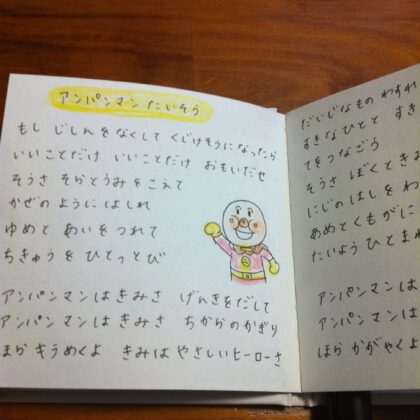 アンパンマン たいそう
もし じしんをなくして くじけそうになったら
いいことだけ いいことだけ おもいだせ
そうさ そらとうみをこえて
かぜのように はしれ
ゆめと あいを つれて
ちきゅうを ひとっとび
アンパンマンは きみさ げんきをだして
アンパンマンは きみさ ちからのかぎり
ほら キラめくよ きみは やさしいヒーローさ
だいじなもの わすれ
すきなひとと すき
てを つなごう
そうさ ぼくときみ
にじの はしを わ
あめとくもが に
たいよう ひとまわ
アンパンマンは
アンパンマンは
ほら かがやくよ